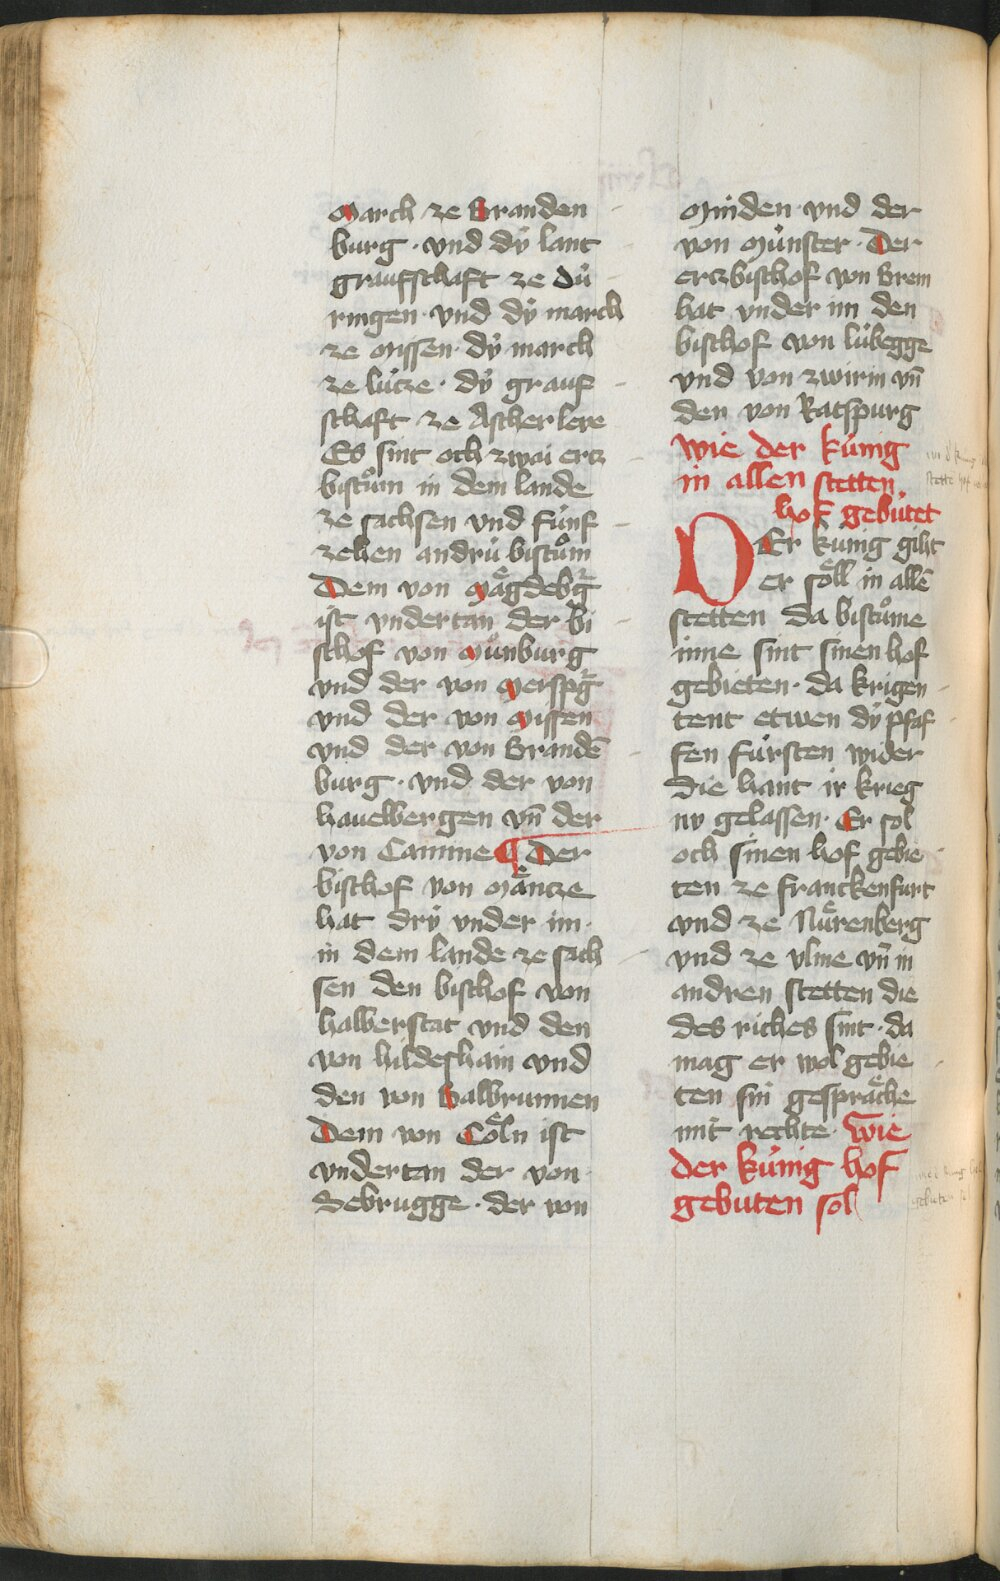 March ze Branden
burg · vnd dÿ lant
graufschaft ze du̍
ringen · vnd dÿ march
ze missen · dÿ march
ze lu̍tze · dÿ grauf
schaft ze Ascherlere
Es sint och zwai ertz
bistuͦm in dem lande
ze sachsen vnd fu̍nf
zehen andru̍ bistuͦm
Dem von Maͤgdebg̉
ist vndertan der bi
schof von Nu̍nburg
vnd der von Merspg̉
vnd der von Missen
vnd der von Brandē
burg · vnd der von
hauelbergen vn̄ der
von Camme ¶ Der
bischof von Maͤntze
hat dry vnder im ·
in dem lande ze sach
sen den bischof von
halberstat vnd den
von hildeshain vnd
den von Halbrunnen
Dem von Coͤln ist
vndertan der von
Osebrugge · der von
Minden · vnd der
von Mu̍nster · Der
ertzbischof von Brem
hat vnder im den
bischof von lu̍begge
vnd von zwirin vn̄
den von Ratspurg
wie der ku̍nig
in allen stetten
hof gebu̍tet
DEr ku̍nig giht
er soͤll in allē
stetten da bistuͦme
inne sint sinen hof
gebieten · da krigen
tent etwen dÿ pfaf
fen fu̍rsten wider
die hant ir krieg
nv gelassen · Er sol
och sinen hof gebie
ten ze franckenfurt
vnd ze Nuͤrenberg
vnd ze vlme vn̄ in
andren stetten die
des riches sint · da
mag er wol gebie
ten sin gespraͤche
mit rechte · Wie
der ku̍nig hof
gebuten sol